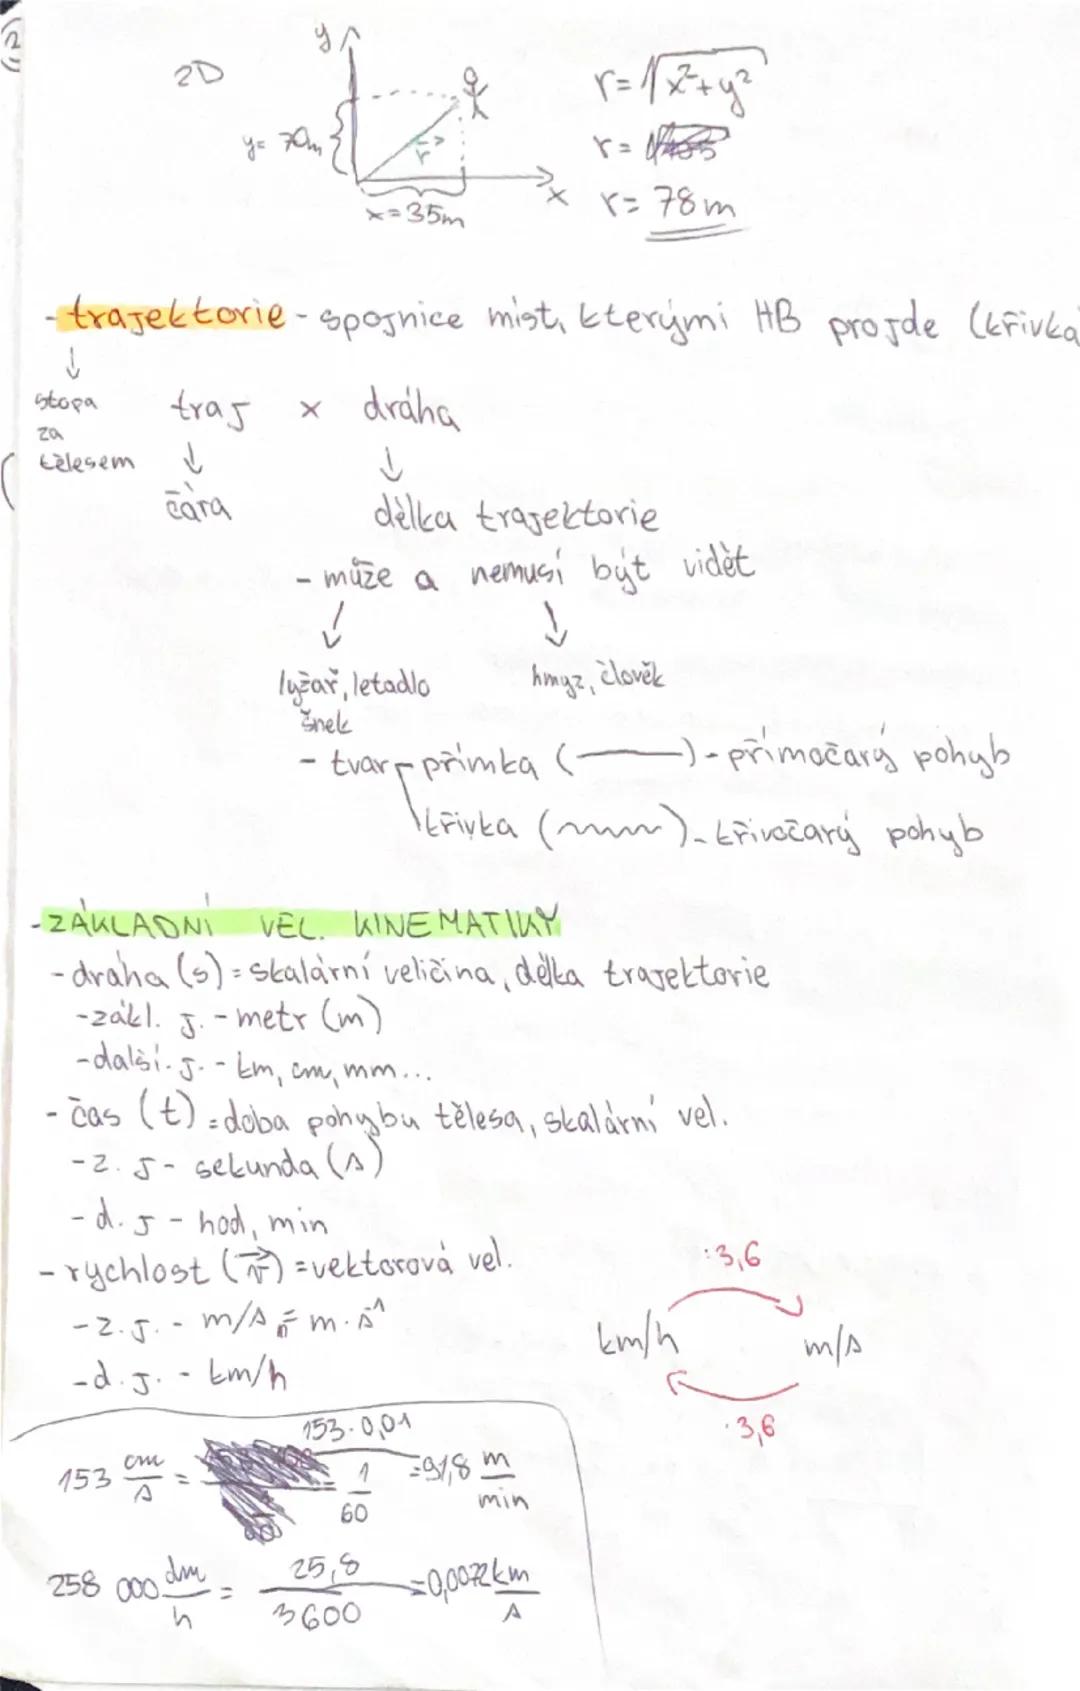 2
2D
y
y = 70m
r
x = 35m
x
r = √x²+y²
r =
r = 78 m
- trajektorie - spojnice míst, kterými HB projde (křivka
↓
stopa
za
tělesem
traj x dráha
↓ ↓
čára
délka trajektorie
- může a nemusí být vidět
↓ ↓
lyžař, letadlo
šnek
hmyz, člověk
- tvar - přímka ( ) - přímočarý pohyb
křivka ( ) - křivočarý pohyb
- ZÁKLADNÍ VEL. KINEMATIKY
- dráha (s) = skalární veličina, délka trajektorie
- zákl. j. - metr (m)
- další. j. - km, cm, mm...
- čas (t) = doba pohybu tělesa, skalární vel.
- z. j - sekunda (s)
- d. j - hod, min
- rychlost (v) = vektorová vel.
- z. j. - m/s = m·s⁻¹
- d. j. - km/h
:3,6
km/h → m/s
·3,6
153 cm/s = 153·0,01 / 1/60 = 91,8 m/min
258 000 dm/h = 25,8/3600 = 0,0072 km/s